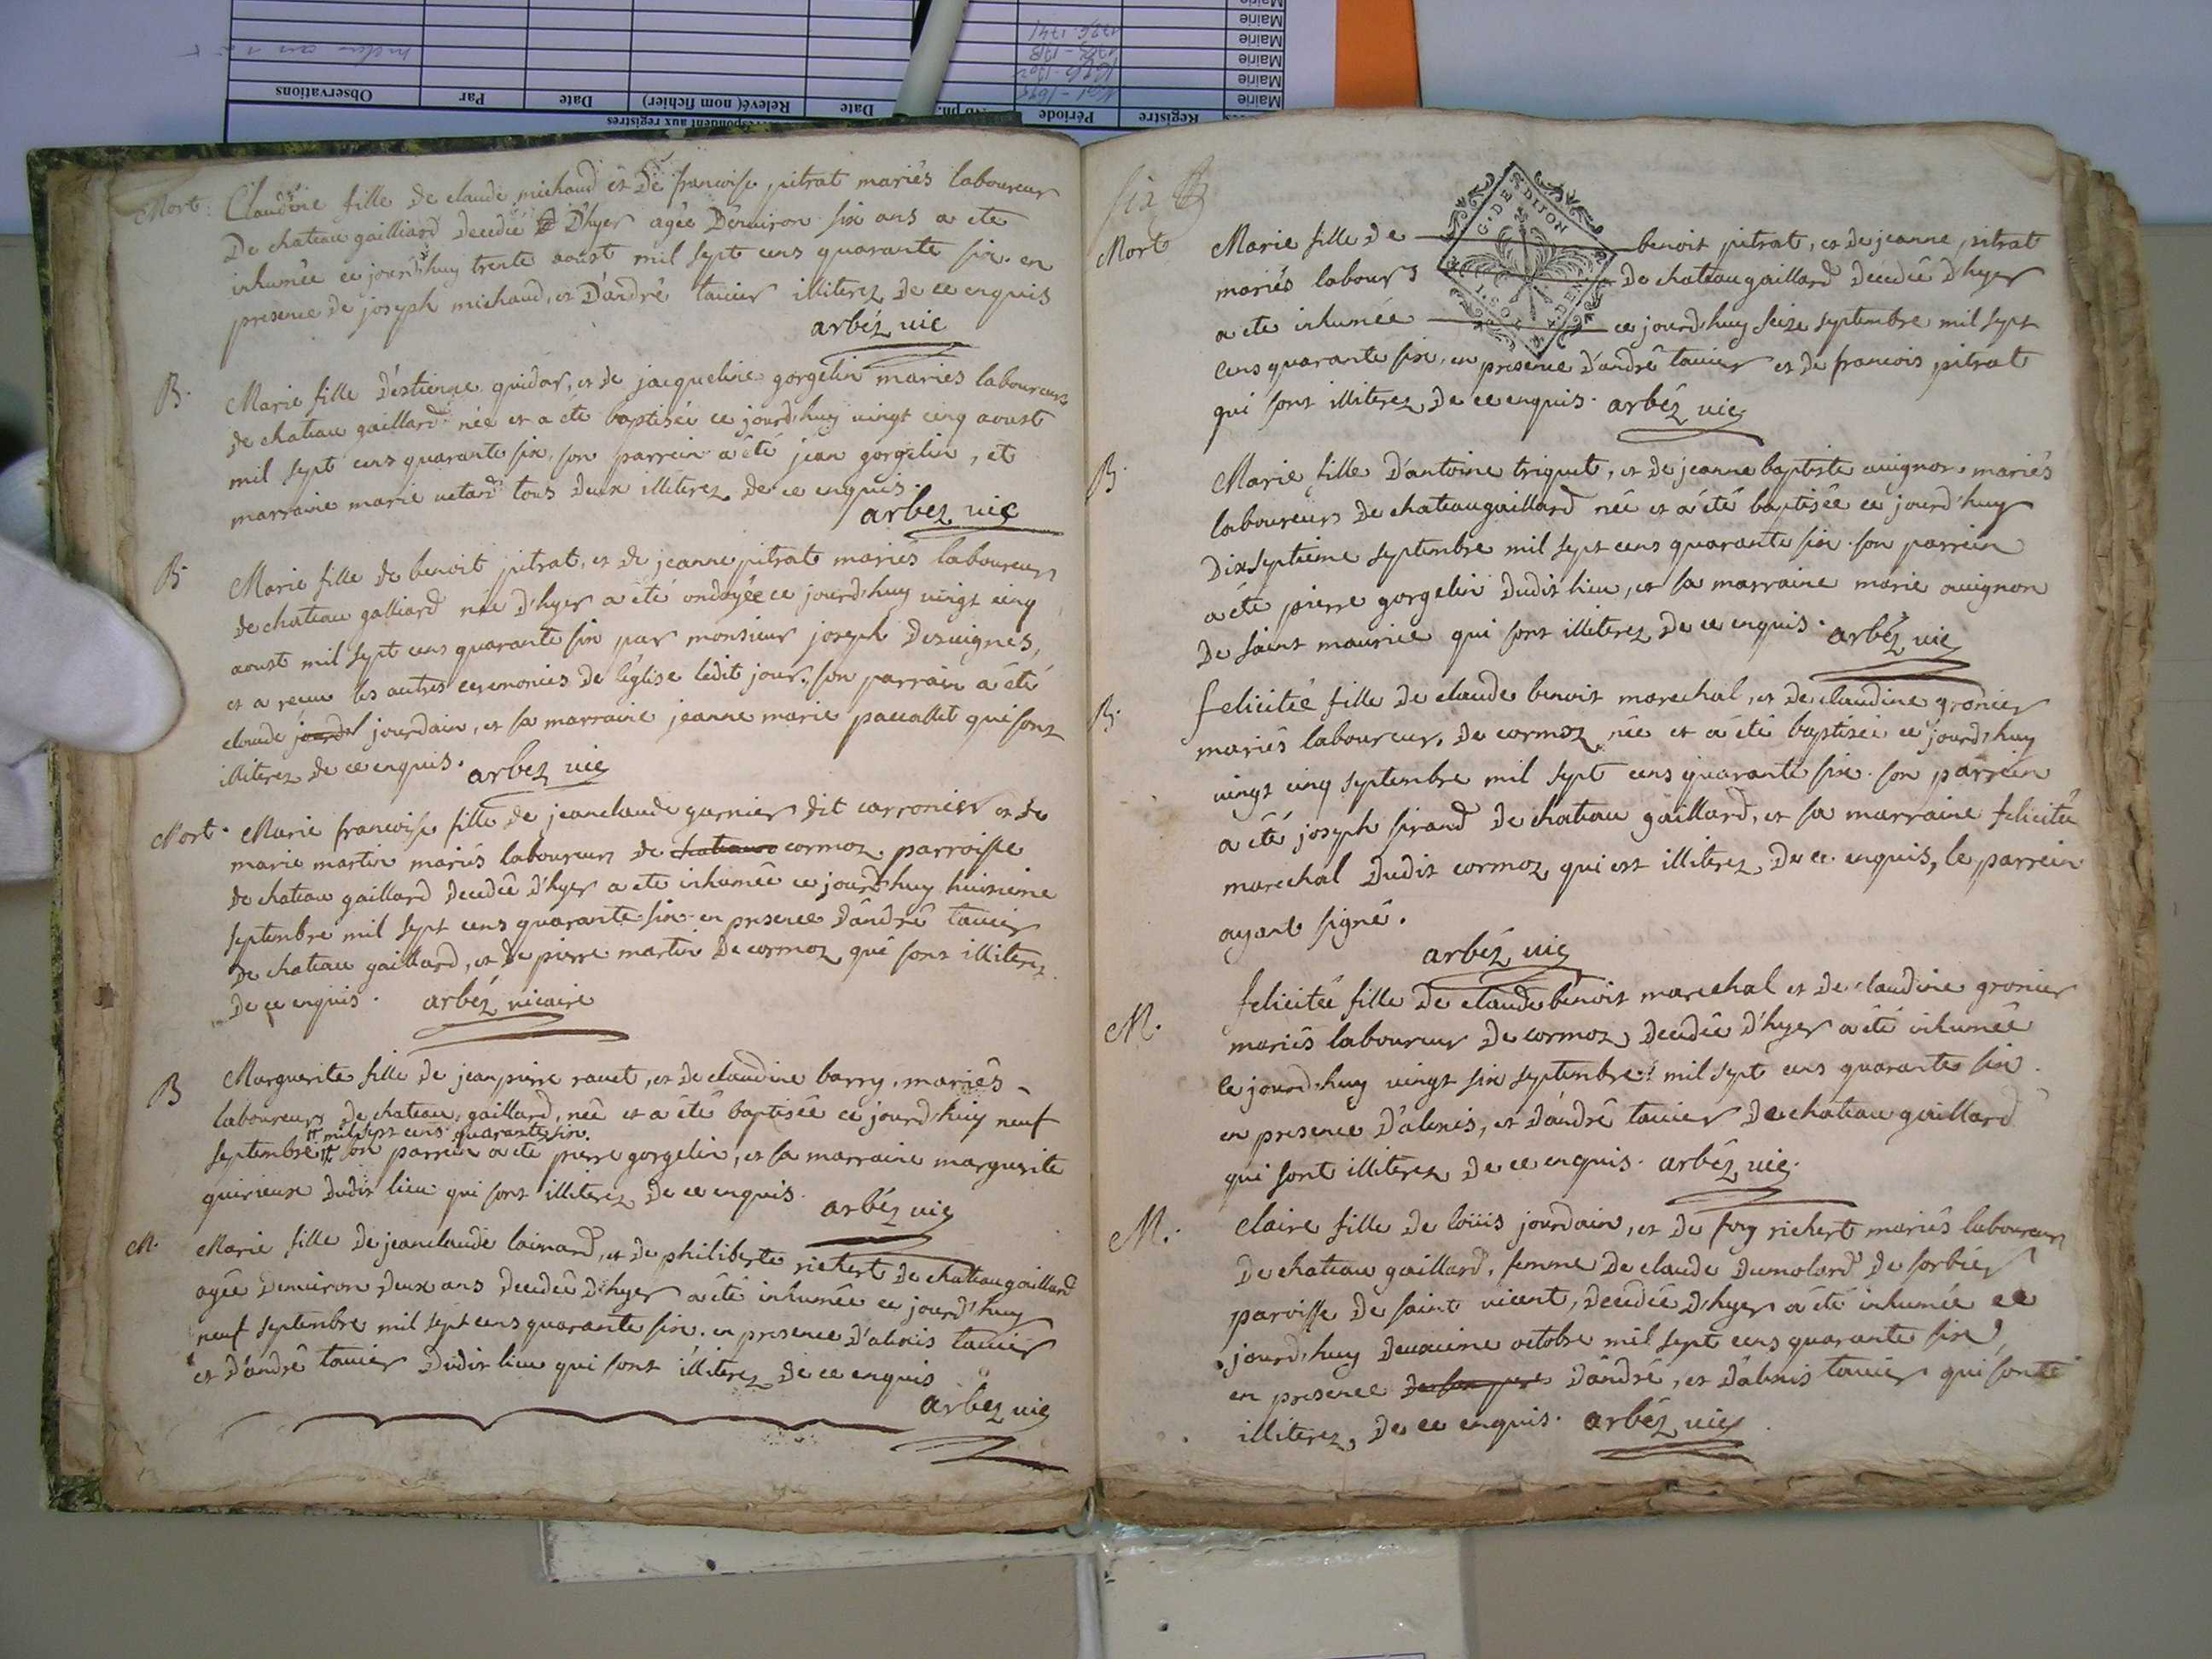 Observations
Par
Date
Relevé( nom fichier)
Date
Période
Registre
Mairie
Mairie
Mairie
Mairie
Mairie
Mort.
Claudine fille de claude michaud et de francoise pitrat mariés laboureur
De chateau gailliard decedée D'hyer agée D'environ six ans a ete
inhumée ce jourd'huy trente aoust mil sept cens quarante six. en
presence de joseph michaud, et D'andré tavier illiterez de ce enquis
arbéz vic
B.
Marie fille d'estienne guidar, et de jacqueline gorgelin mariés laboureurs
de chateau gaillard née et a ete baptisée ce jourd'huy vingt cinq aoust
mil sept cens quarante six, son parrein a été jean gorgelin, et
marraine marie vetard tous deux illiterez de ce enquis.
arbez vic
B.
Marie fille de benoit pitrat, et de jeanne pitrat mariés laboureurs
de chateau galliard née d'hyer a été ondoyée ce jourd'huy vingt cinq
aoust mil sept cens quarante six par monsieur joseph desvignes,
et a recue les autres ceremonies de l'église ledit jour. son parrain a été
claude jourd jourdain, et sa marraine jeanne marie paccallet qui sont
illiterez de ce enquis. arbez vic
Mort.
Marie francoise fille de jeanclaude garnier dit carronier et de
marie martin mariés laboureurs de chateau cormoz. parroisse
de chateau gaillard decedée d'hyer a ete inhumée ce jourd'huy huitieme
septembre mil sept cens quarante six en presence d'andré tavier
de chateau gaillard, et de pierre martin de cormoz qui sont illiterez
de ce enquis. arbéz vicaire
B
Marguerite fille de jeanpierre ravet, et de claudine barry, mariés
laboureurs de chateau gaillard, née et a été baptisée ce jourd'huy neuf
mil sept cens quarante six.
septembre son parrein a ete pierre gorgelin, et sa marraine marguerite
quirieux dudit lieu qui sont illiterez de ce enquis.
arbéz vic
M.
Marie fille de jeanclaude lainard, et de philiberte richert de chateau gaillard
agée denviron deux ans decedée d'hyer a été inhumée ce jourd'huy
neuf septembre mil sept cens quarante six. en presence d'alexis tavier
et d'andré tavier dudit lieu qui sont illiterez de ce enquis
arbez vic
six
G. DE DIJON
Mort
Marie fille de benoit pitrat, et de jeanne pitrat
mariés labours de chateaugaillard decedée d'hyer
a ete inhumée ce jourd'huy seize septembre mil sept
cens quarante six, en presence d'andré tavier et de francois pitrat
qui sont illiterez de ce enquis. arbéz vic
B.
Marie fille d'antoine triquet, et de jeanne baptiste avignon mariés
laboureurs de chateaugaillard née et a été baptisée ce jourd'huy
dixseptieme septembre mil sept cens quarante six. son parrein
a été pierre gorgelin dudit lieu, et sa marraine marie avignon
de saint maurice qui sont illiterez de ce enquis. arbéz vic
B.
felicitée fille de claude benoit marechal, et de claudine gronier
mariés laboureurs de cormoz née et a été baptisée ce jourd'huy
vingt cinq septembre mil sept cens quarante six. son parrein
a été joseph sirand de chateau gaillard, et sa marraine felicitée
marechal dudit cormoz qui est illiterez de ce enquis, le parrein
ayant signé.
arbéz vic
M.
felicitée fille de claude benoit marechal et de claudine gronier
mariés laboureur de cormoz decedée d'hyer a été inhumée
ce jourd'huy vingt six septembre mil sept cens quarante six.
en presence d'alexis, et d'andré tavier de chateau gaillard
qui sont illiterez de ce enquis. arbéz vic.
M.
claire fille de loüis jourdain, et de foy richert mariés laboureurs
de chateau gaillard, femme de claude dumolard de sorbier
paroisse de saint vicent, decedée d'hyer a été inhumée ce
jourd'huy deuxieme octobre mil sept cens quarante six,
en presence de son pere d'andré, et d'alexis tavier qui sont
illiterez, de ce enquis. arbéz vic